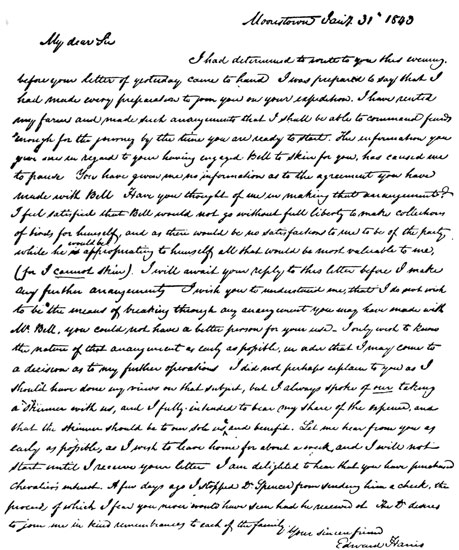 Moorestown Jany. 31st 1843
My dear Sir
I had determined to write to you this evening
before your letter of yesterday came to hand I was prepared to say that I
had made every preparation to join you on your expedition. I have rented
my farms and made such arrangements that I shall be able to command funds
enough for the journey by the time you are ready to start. The information you
give me in regard to your having engaged Bell to skin for you, has caused me
to pause You have given me no information as to the agreement you have
made with Bell Have you thought of me in making that arrangement?
I feel satisfied that Bell would not go without full liberty to make collections
of birds for himself, and as there would be no satisfaction to me to be of the party
while he would be appropriating to himself all that would be most valuable to me,
(for I cannot skin). I will await your reply to this letter before I make
any further arrangements I wish you to understand me, that I do not wish
to be the means of breaking through any arrangement you may have made with
Mr. Bell, you could not have a better person for your use. I only wish to know
the nature of that arrangement as early as possible, in order that I may come to
a decision as to my further operations I did not perhaps explain to you as I
should have done my views on that subject, but I always spoke of our taking
a skinner with us, and I fully intended to bear my share of the expense, and
that the skinner should be to our sole use, and benefit. Let me hear from you as
early as possible, as I wish to leave home for about a week, and I will not
start until I receive your letter I am delighted to hear that you have purchased
Chevalier's interest. A few days ago I stopped Dr Spencer from sending him a check, the
proceeds of which I fear you never would have seen had he received it The Dr desires
to join me in kind remembrances to each of the family
Your sincere friend
Edward Harris